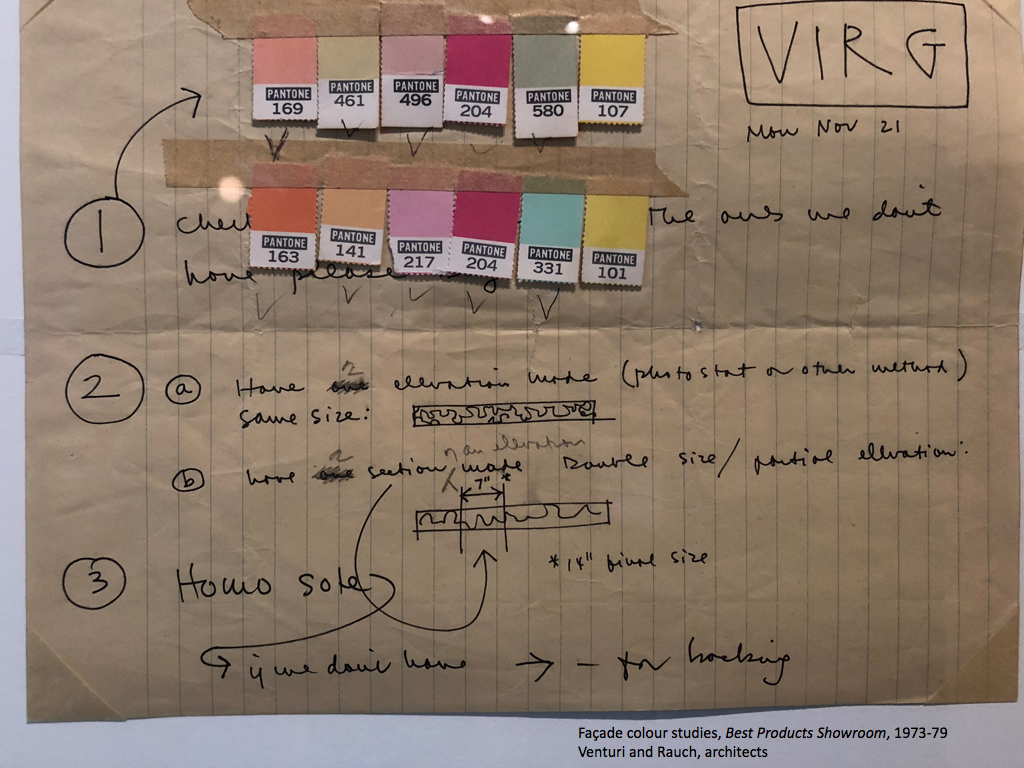 PANTONE 169 PANTONE 461 PANTONE 496 PANTONE 204 PANTONE 580 PANTONE 107
VIRG
Mon Nov 21
PANTONE 163 PANTONE 141 PANTONE 217 PANTONE 204 PANTONE 331 PANTONE 101
1 The ones we don't
have please
2 a Have 2 elevation made (photostat or other method)
same size:
an elevation
b have 2 section made Double size/ partial elevation:
7" *
* 14" final size
3 Homosote
if we don't have → – for backing
Façade colour studies, Best Products Showroom, 1973-79
Venturi and Rauch, architects